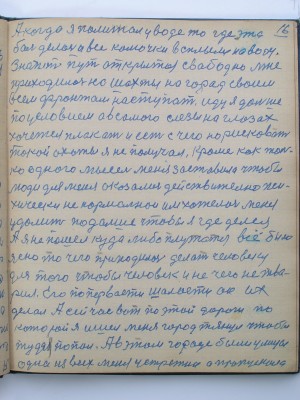 А когда я полистал у воде то где эта 16
был делал а все комочки всплыли на воду.
Значит пут открытой свободно мне
приходилос но шахты на город своим
всем фронтам наступат. иду я дальше
по условием а самого слезы на глазах
хочется плакат и ест с чего но рисковат
такой охоты я не получал, кроме как тол
ко одного мысель меня заставила чтобы
люди для меня оказали действително
нормалном им хотелос меня
удалит подалше чтобы я где делся
А я не пошел куда либо плутат все было
ясно то чего приходилос делат человеку
для того чтобы человек и не чего не тво
рил. Его по первасти шалости он их
делал А сейчас вот по этой дороги по
которой я шел меня город тянул чтобы
я туда попал. А в этом городе были улицы
одна из всех меня встретила а пропускала